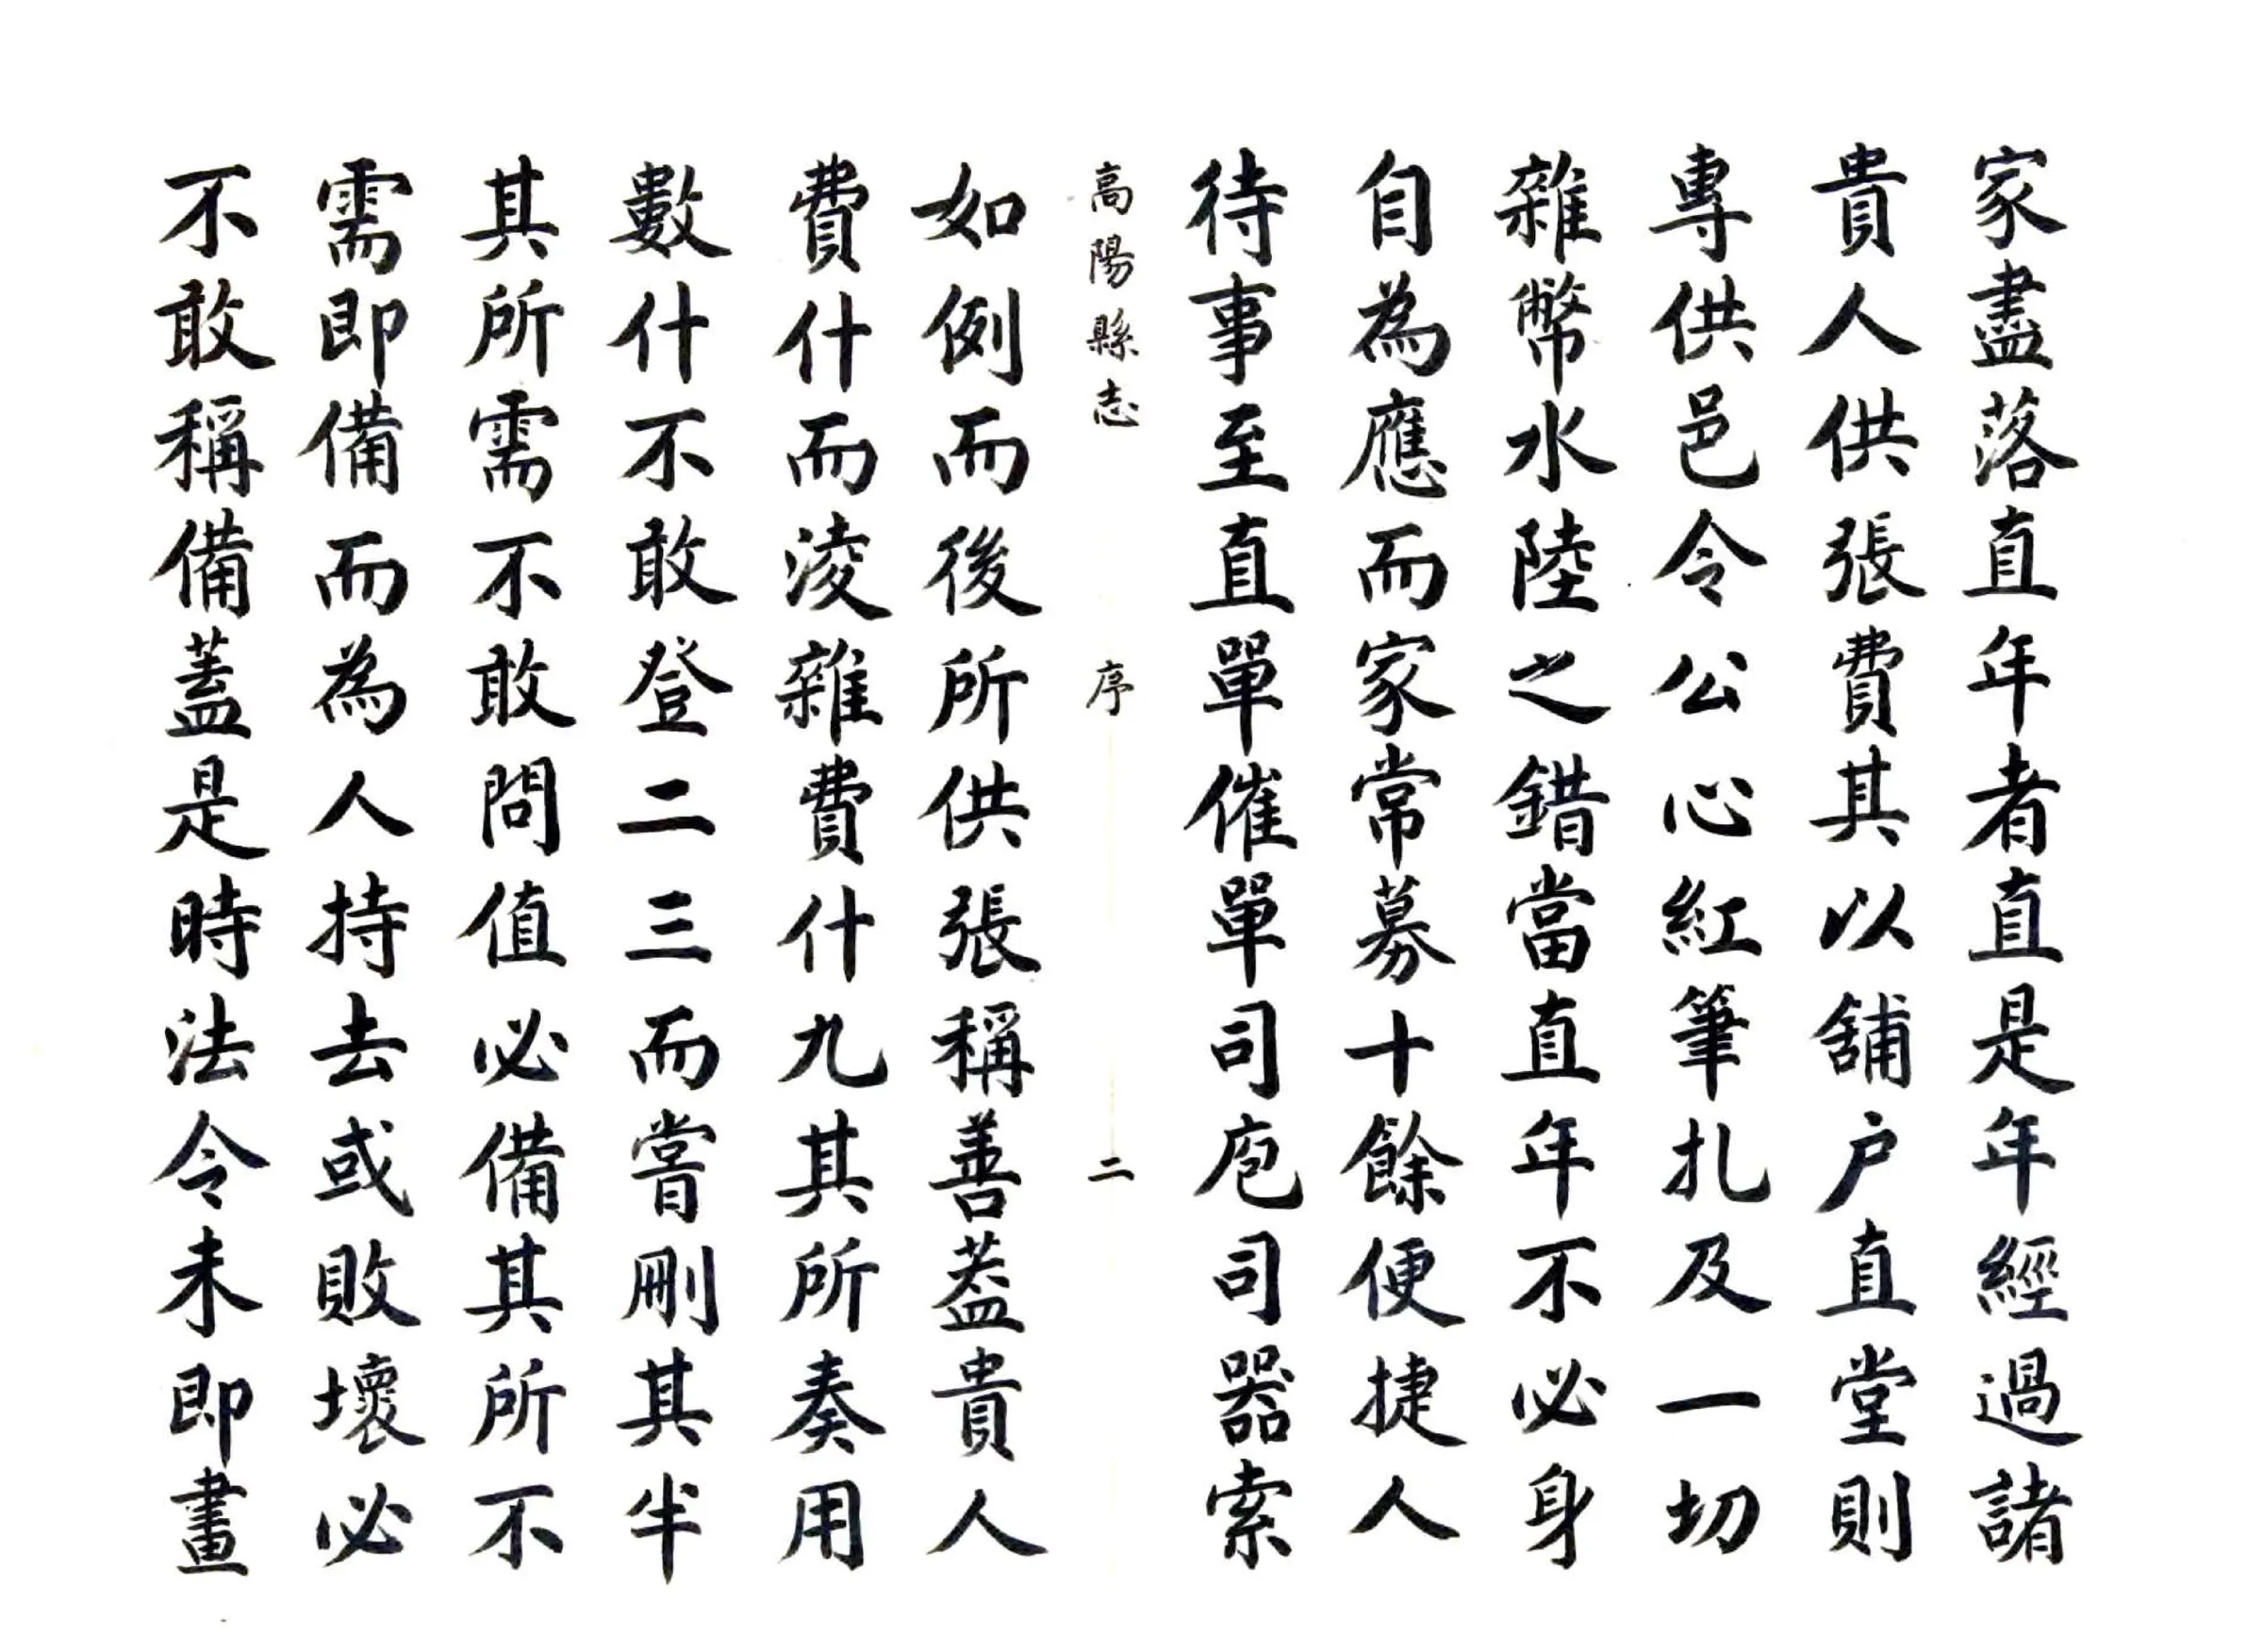 家盡落直年者直是年經過諸
貴人供張費其以舖户直堂則
專供邑令公心紅筆扎及一切
雜幣水陸之錯當直年不必身
自為應而家常募十餘便捷人
待事至直單催單司庖司器索
高陽縣志 序 二
如例而後所供張稱善蓋貴人
費什而淩雜費什九其所奏用
數什不敢登二三而嘗刪其半
其所需不敢問值必備其所不
需即備而為人持去或敗壞必
不敢稱備蓋是時法令未即畫